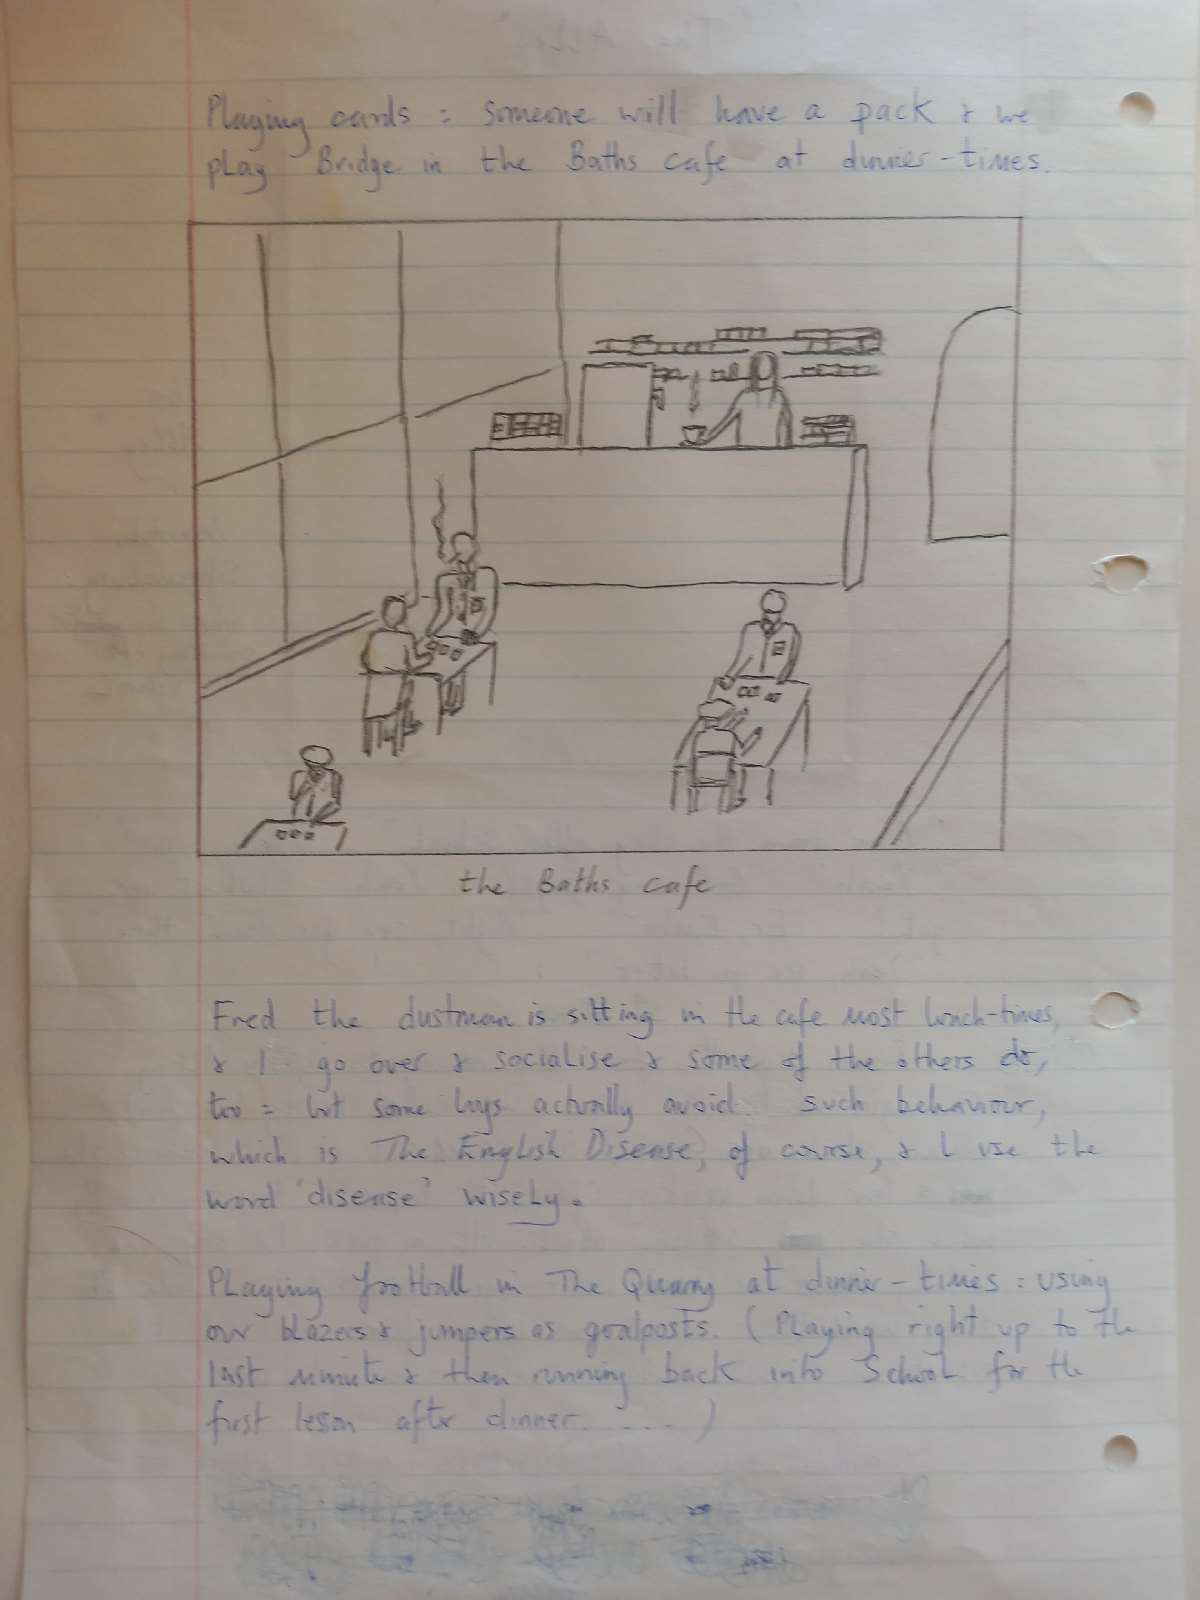 Playing cards = someone will have a pack & we
play Bridge in the Baths cafe at dinner-times.
the Baths cafe
Fred the dustman is sitting in the cafe most lunch-times,
& I go over & socialise & some of the others do,
too = but some boys actually avoid such behaviour,
which is The English Disease, of course, & I use the
word 'disease' wisely.
Playing football in The Quarry at dinner-times: using
our blazers & jumpers as goalposts. (Playing right up to the
last minute & then running back into School for the
first lesson after dinner. ....)